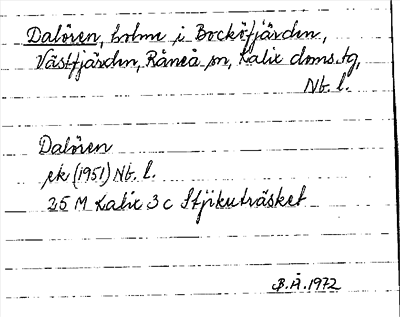 Dalören, holme i Bocköfjärden,
Västfjärden, Råneå sn, Kalix doms.tg,
Nb. l.
Dalören
ek (1951) Nb. l.
25 M Kalix 3 c Stjikuträsket
B.Å. 1972